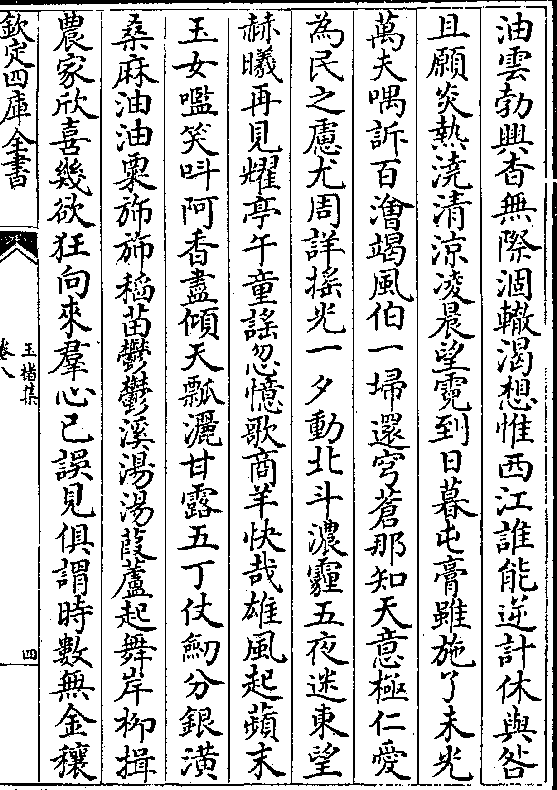 油雲勃興杳無際涸轍渴想惟西江誰能逆計休與咎
且願炎熱澆清涼凌晨望霓到日暮屯膏雖施了未光
萬夫喁訴百澮竭風伯一埽還穹蒼那知天意極仁愛
為民之慮尤周詳搖光一夕動北斗濃霾五夜迷東望
赫曦再見耀亭午童謠忽憶歌商羊快哉雄風起蘋末
玉女嚂笑呌阿香盡傾天瓢灑甘露五丁仗劒分銀潢
桑麻油油粟斾斾稻苗鬱鬱溪湯湯葭蘆起舞岸柳揖
農家欣喜幾欲狂向來羣心已誤見俱謂時數無金穰
欽定四庫全書
玉楮集
卷八
四